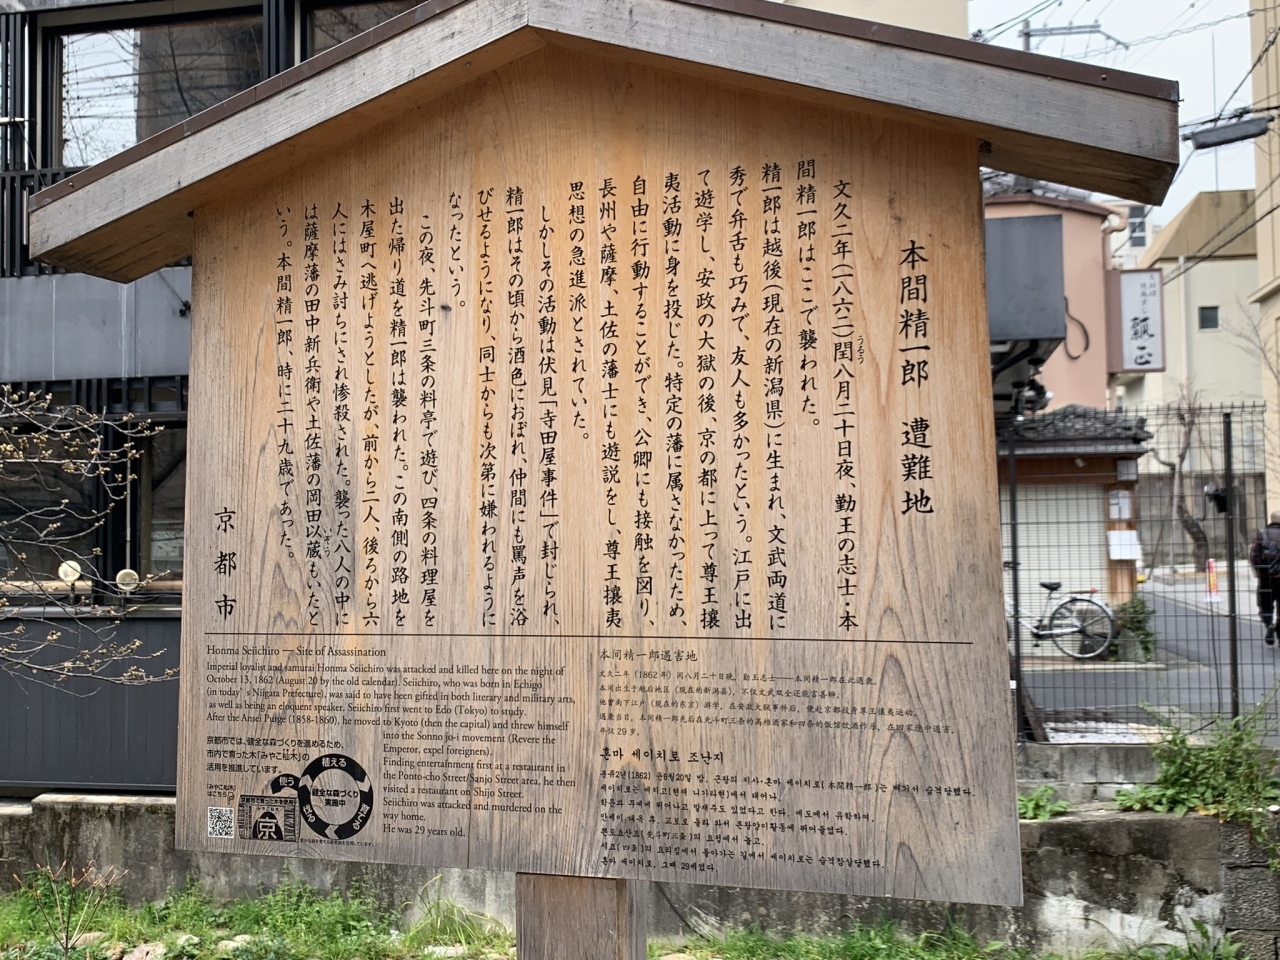 本間精一郎 遭難地
文久二年(一八六二)閏八月二十日夜、勤王の志士・本
うるう
間精一郎はここで襲われた。
精一郎は越後(現在の新潟県)に生まれ、文武両道に
秀で弁舌も巧みで、友人も多かったという。江戸に出
て遊学し、安政の大獄の後、京の都に上って尊王攘
夷活動に身を投じた。特定の藩に属さなかったため、
自由に行動することができ、公卿にも接触を図り、
長州や薩摩、土佐の藩士にも遊説をし、尊王攘夷
思想の急進派とされていた。
しかしその活動は伏見「寺田屋事件」で封じられ、
精一郎はその頃から酒色におぼれ、仲間にも罵声を浴
びせるようになり、同士からも次第に嫌われるように
なったという。
この夜、先斗町三条の料亭で遊び、四条の料理屋を
出た帰り道を精一郎は襲われた。この南側の路地を
木屋町へ逃げようとしたが、前から二人、後ろから六
人にはさみ討ちにされ惨殺された。襲った八人の中に
は薩摩藩の田中新兵衛や土佐藩の岡田以蔵もいたと
いぞう
いう。本間精一郎、時に二十九歳であった。
京都市
Honma Seiichiro — Site of Assassination
Imperial loyalist and samurai Honma Seiichiro was attacked and killed here on the night of
October 13, 1862 (August 20 by the old calendar). Seiichiro, who was born in Echigo
(in today' s Niigata Prefecture), was said to have been gifted in both literary and military arts,
as well as being an eloquent speaker. Seiichiro first went to Edo (Tokyo) to study.
After the Ansei Purge (1858-1860), he moved to Kyoto (then the capital) and threw himself
into the Sonno jo-i movement (Revere the
Emperor, expel foreigners).
Finding entertainment first at a restaurant in
the Ponto-cho Street/Sanjo Street area, he then
visited a restaurant on Shijo Street.
Seiichiro was attacked and murdered on the
way home.
He was 29 years old.
京都市では、健全な森づくりを進めるため、
市内で育った木「みやこ杣木」の
活用を推進しています。
「みやこ杣木」
はこちら
植える
使う
健全な森づくり
実施中
京
本间精一郎遇害地
文久二年(1862年)闰八月二十日晚,勤王志士——本间精一郎在此遇袭。
本间出生于越后地区(现在的新潟县),不仅文武双全还能言善辩。
他曾南下江户(现在的东京)游学,在安政大狱事件后,便赴京都投身尊王攘夷运动。
遇袭当日,本间精一郎先后在先斗町三条的高档酒家和四条的饭馆饮酒作乐,在回家途中遇害,
年仅29岁。
혼마 세이치로 조난지
분큐2년(1862) 윤8월20일 밤, 근왕의 지사・혼마 세이치로(本間精一郎)는 여기서 습격당했다.
세이치로는 에치고(현재 니가타현)에서 태어나,
학문과 무예에 뛰어나고 말재주도 있었다고 한다. 에도에서 유학하여,
안세이 대옥 후, 교토로 올라 와서 존왕양이활동에 뛰어들었다.
폰토쵸산죠(先斗町三条)의 요정에서 놀고,
시죠(四条)의 요리집에서 돌아가는 길에서 세이치로는 습격참살당했다.
혼마 세이치로, 그때 29세였다.
瓢正